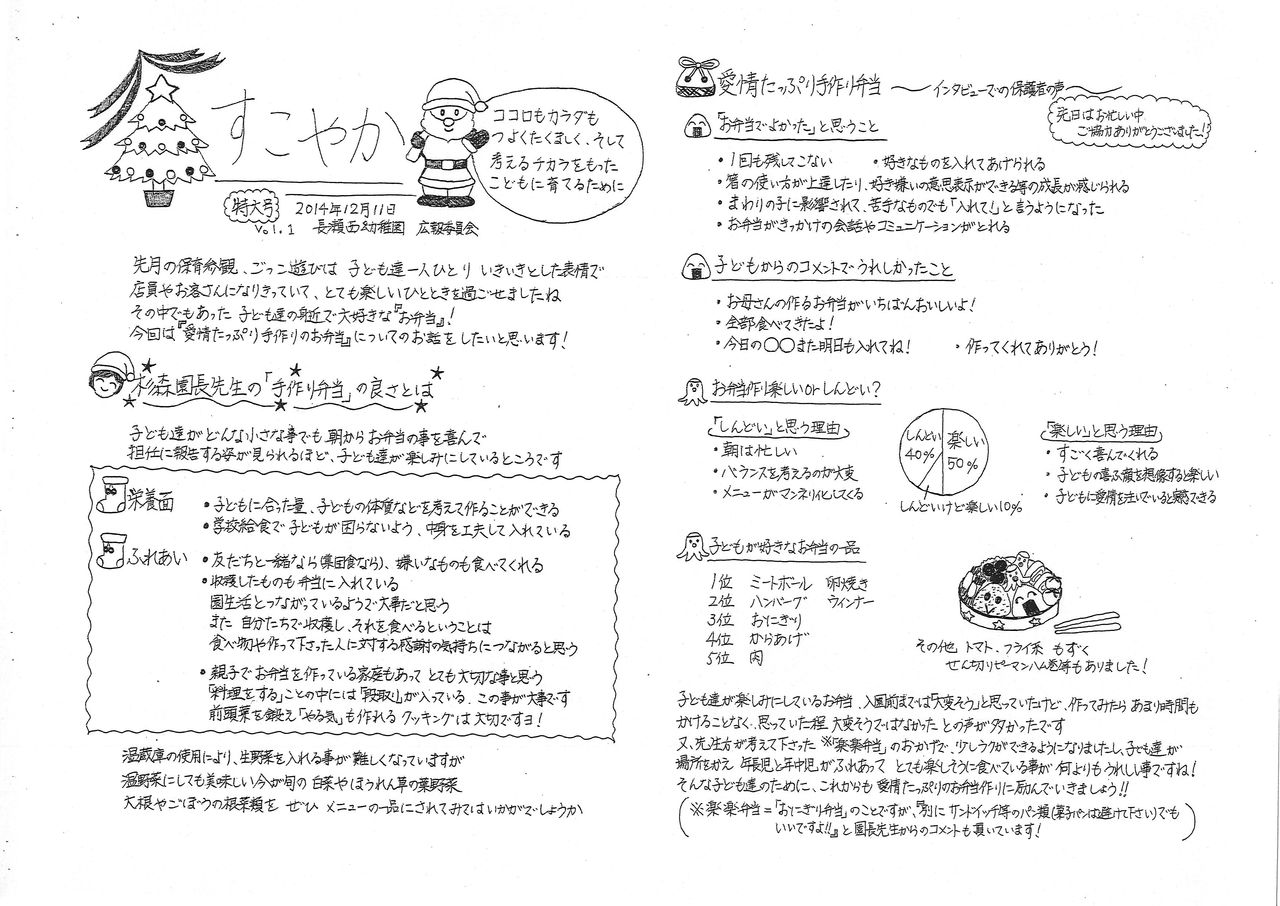 すこやか
ココロもカラダも
つよくたくましく、そして
考えるチカラをもった
こどもに育てるために
特大号 2014年12月11日
Vol.1 長瀬西幼稚園 広報委員会
先月の保育参観、ごっこ遊びは 子ども達一人ひとり いきいきとした表情で
店員やお客さんになりきっていて、とても楽しいひとときを過ごせましたね
その中でもあった 子ども達の身近で大好きな『お弁当』!
今回は『愛情たっぷり手作りのお弁当』についてのお話をしたいと思います!
杉森園長先生の「手作り弁当」の良さとは
子ども達がどんな小さな事でも朝からお弁当の事を喜んで
担任に報告する姿が見られるほど、子ども達が楽しみにしているところです
栄養面
・子どもに合った量、子どもの体質などを考えて作ることができる
・学校給食で子どもが困らないよう、中身を工夫して入れている
ふれあい
・友だちと一緒なら(集団食なら)、嫌いなものも食べてくれる
・収穫したものも弁当に入れている
園生活とつながっているようで大事だと思う
また 自分たちで収穫し、それを食べるということは
食べ物や作って下さった人に対する感謝の気持ちにつながると思う
・親子でお弁当を作っている家庭もあって とても大切な事と思う
「料理をする」ことの中には「段取り」が入っている。この事が大事です
前頭葉を鍛え「やる気」も作れる クッキングは大切ですヨ!
温蔵庫の使用により、生野菜を入れる事が難しくなっていますが
温野菜にしても美味しい今が旬の 白菜やほうれん草の葉野菜
大根やごぼうの根菜類を ぜひ メニューの一品にされてみてはいかがでしょうか
愛情たっぷり手作り弁当 〜インタビューでの保護者の声〜
先日はお忙しい中
ご協力ありがとうございました!
「お弁当でよかった」と思うこと
・1回も残してこない ・好きなものを入れてあげられる
・箸の使い方が上達したり、好き嫌いの意思表示ができる等の成長が感じられる
・まわりの子に影響されて、苦手なものでも「入れて!」と言うようになった
・お弁当がきっかけの会話やコミュニケーションがとれる
子どもからのコメントでうれしかったこと
・お母さんの作るお弁当がいちばんおいしいよ!
・全部食べてきたよ!
・今日の〇〇また明日も入れてね! ・作ってくれてありがとう!
お弁当作り楽しいorしんどい?
「しんどい」と思う理由
・朝は忙しい
・バランスを考えるのが大変
・メニューがマンネリ化してくる
しんどい
40%
楽しい
50%
しんどいけど楽しい10%
「楽しい」と思う理由
・すごく喜んでくれる
・子どもの喜ぶ顔を想像すると楽しい
・子どもに愛情を注いでいると実感できる
子どもが好きなお弁当の一品
1位 ミートボール 卵焼き
2位 ハンバーグ ウィンナー
3位 おにぎり
4位 からあげ
5位 肉
その他 トマト、フライ系 もずく
せん切りピーマンハム巻等もありました!
子ども達が楽しみにしているお弁当、入園前までは「大変そう」と思っていたけど、作ってみたら あまり時間も
かけることなく、思っていた程 大変そうではなかった との声が多かったです
又、先生方が考えて下さった ※『楽楽弁当』のおかげで、少しラクができるようになりましたし、子ども達が
場所をかえ 年長児と年中児がふれあって とても楽しそうに食べている事が 何よりもうれしい事ですね!
そんな子ども達のために、これからも 愛情たっぷりのお弁当作りに励んでいきましょう!!
(※楽楽弁当=「おにぎり弁当」のことですが、『別に サンドイッチ等のパン類(菓子パンは避けて下さい)でも
いいですよ!!』と園長先生からのコメントも頂いています!)